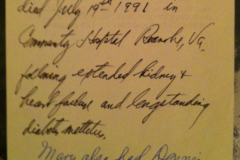 died July 19th 1991 in
Community Hospital Roanoke, VA.
following extended kidney &
heart failure and longstanding
diabetes mellitus.
Mary also had Dennis